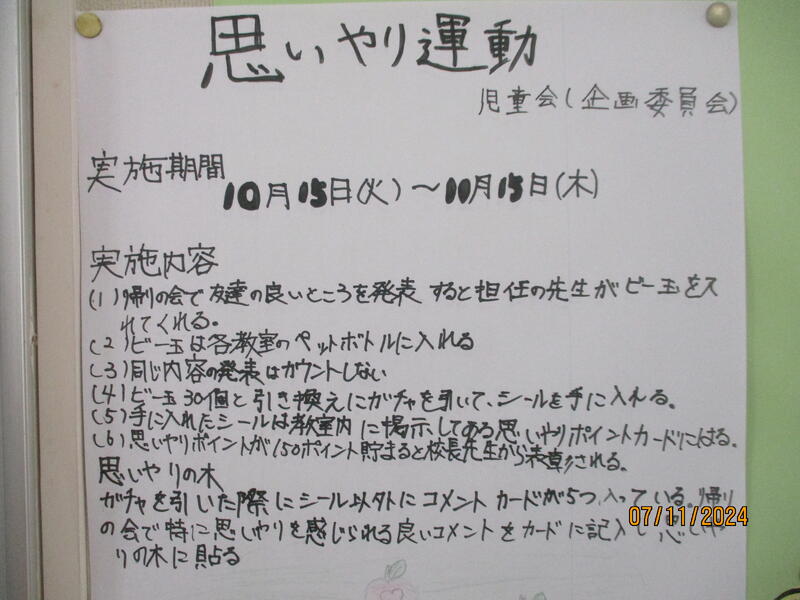 思いやり運動
児童会(企画委員会)
実施期間
10月15日(火)～11月15日(木)
実施内容
(1)帰りの会で友達の良いところを発表すると担任の先生がビー玉を入
れてくれる。
(2)ビー玉は各教室のペットボトルに入れる
(3)同じ内容の発表はカウントしない
(4)ビー玉30個と引き換えにガチャを引いて、シールを手に入れる。
(5)手に入れたシールは教室内に掲示してある思いやりポイントカードにはる。
(6)思いやりポイントが150ポイント貯まると校長先生から表彰される。
思いやりの木
ガチャを引いた際にシール以外にコメントカードが5つ入っている。帰り
の会で特に思いやりを感じられる良いコメントをカードに記入し思いや
りの木に貼る
07/11/2024